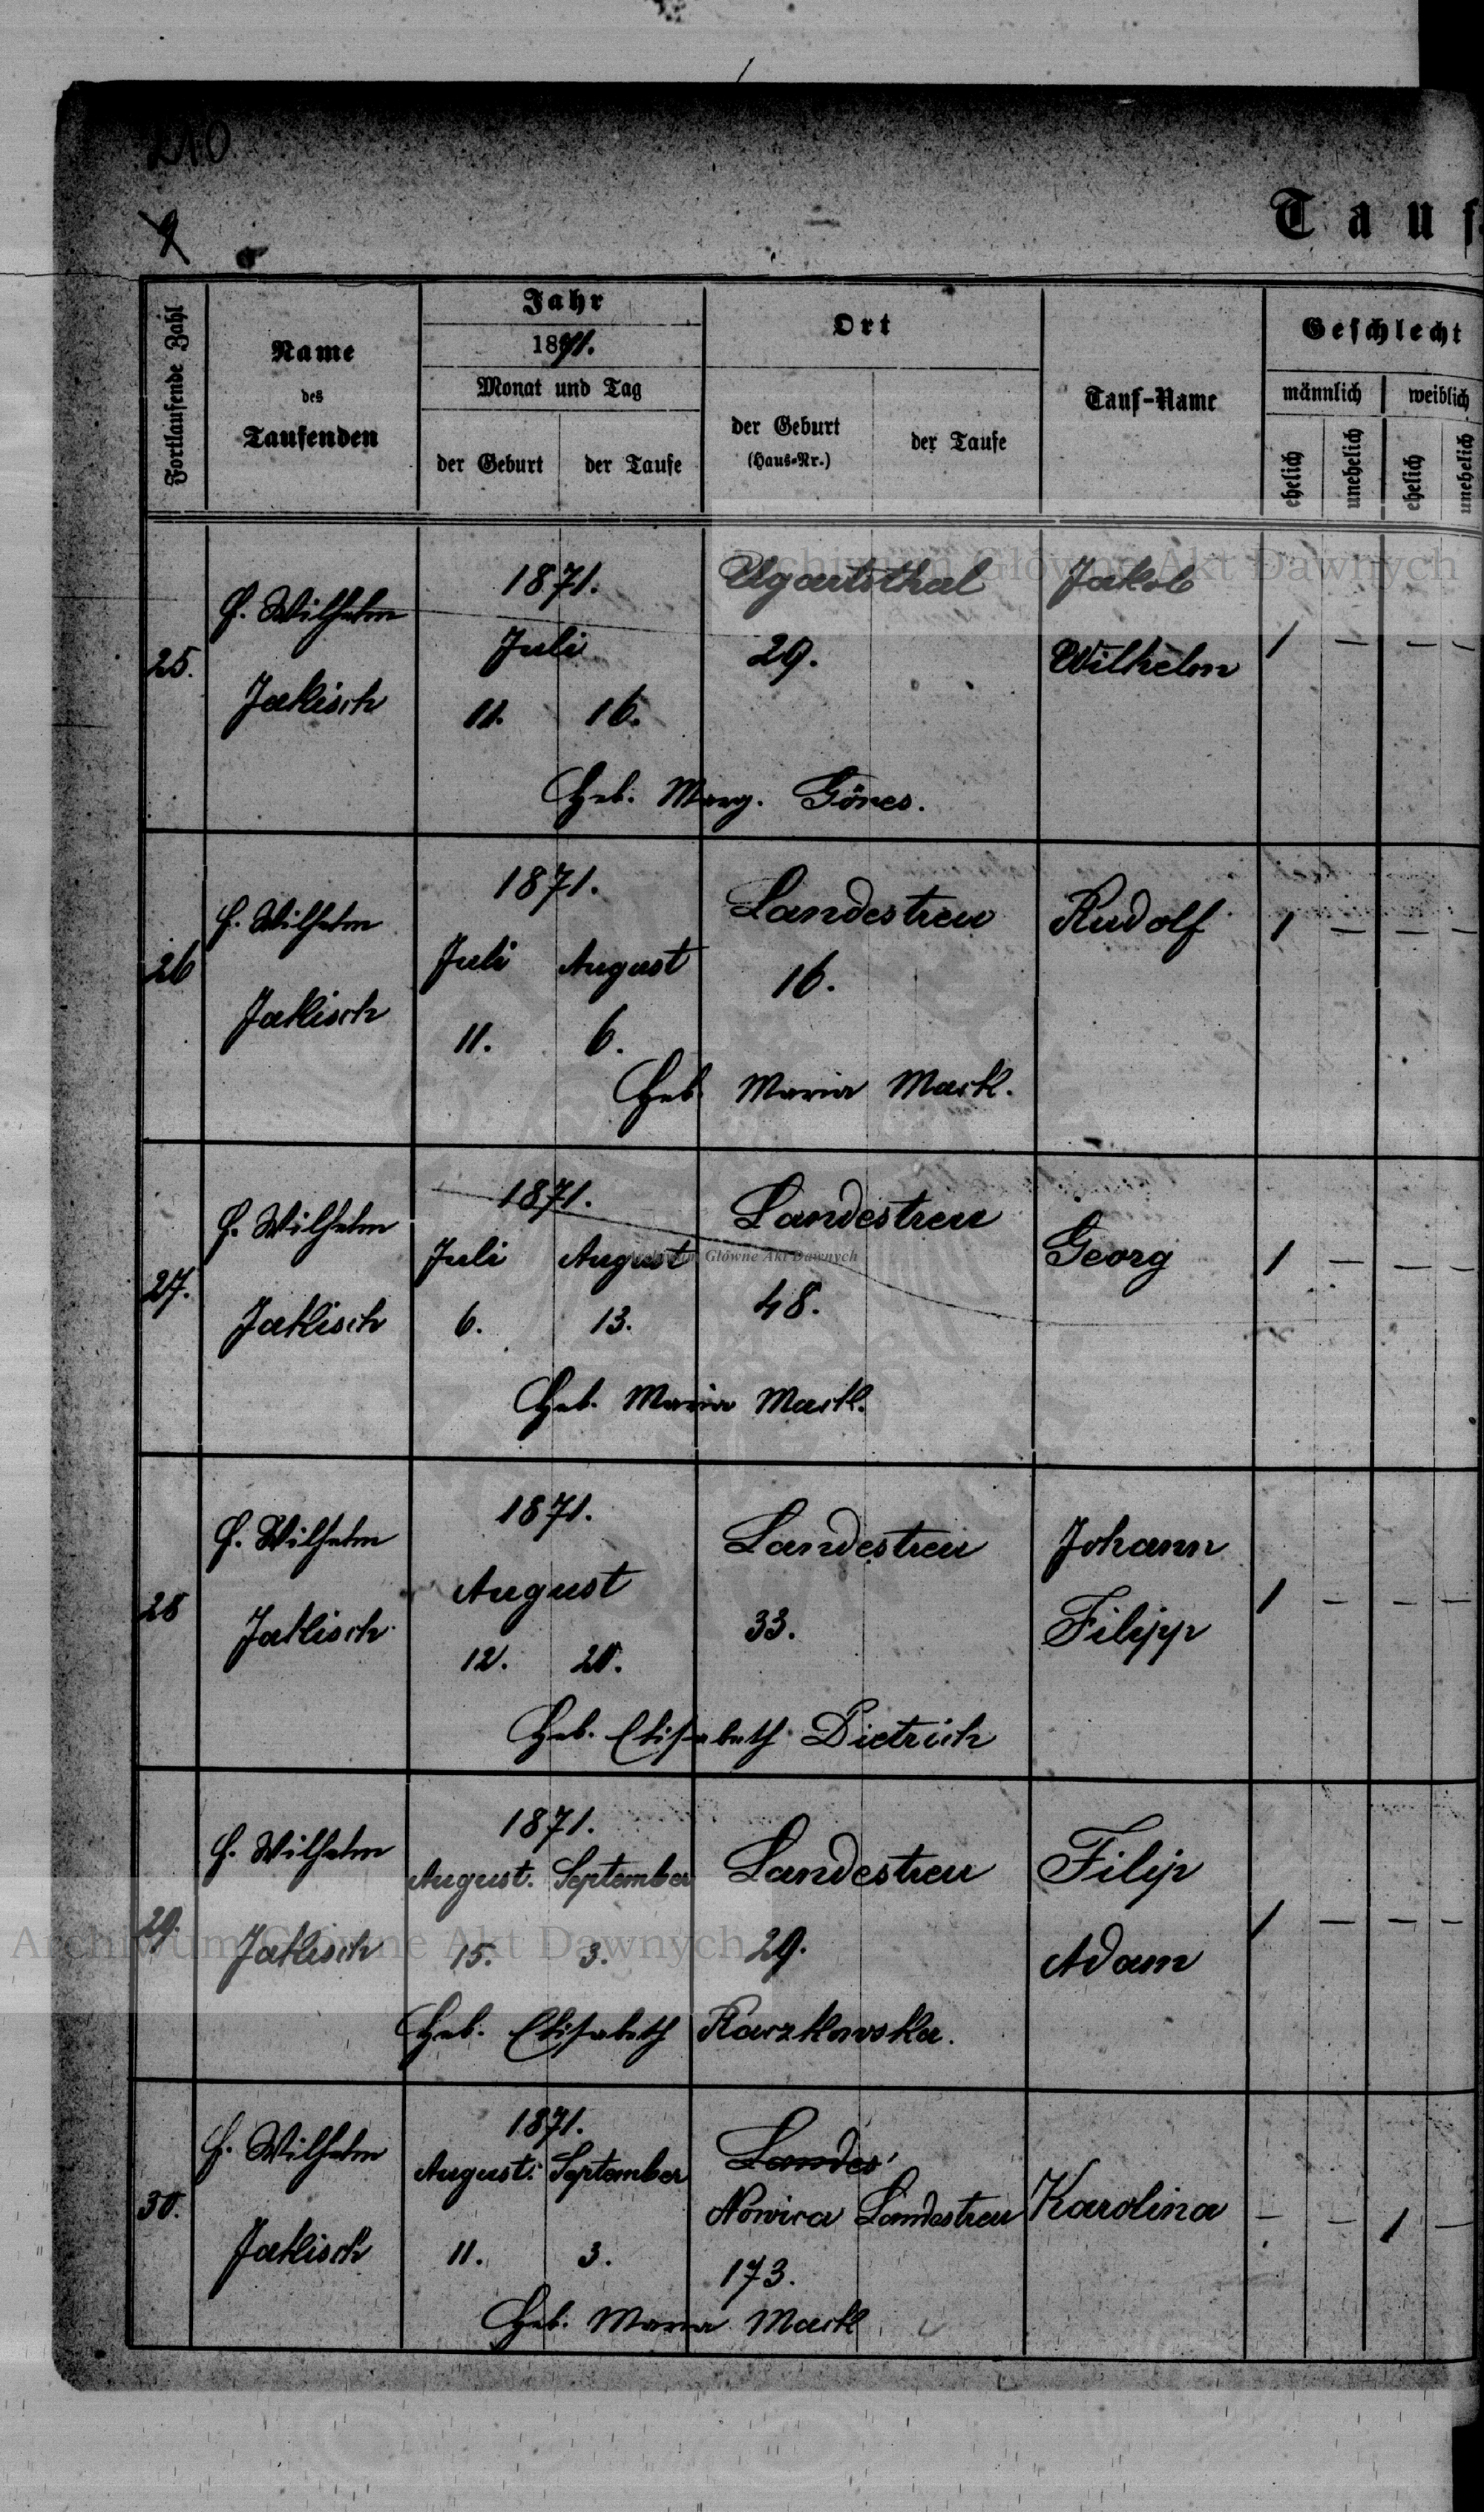 210
9
Tauf
Fortlaufende Zahl
Name
des
Taufenden
Jahr
1871.
Monat und Tag
der Geburt
der Taufe
Ort
der Geburt
(Haus-Nr.)
der Taufe
Tauf-Name
Geschlecht
männlich
weiblich
ehelich
unehelich
ehelich
unehelich
Archiwum Główne Akt Dawnych
25.
H. Wilhelm
Jakisch
1871.
Juli
11. 16.
Ugartsthal
29.
Jakob
Wilhelm
1 — — —
Heb. Marg. Göres.
26
H. Wilhelm
Jakisch
1871.
Juli August
11. 6.
Landestreu
16.
Rudolf
1 — — —
Heb. Maria Mark.
27.
H. Wilhelm
Jakisch
1871.
Juli August
6. 13.
Landestreu
Archiwum Główne Akt Dawnych
48.
Georg
1 — — —
Heb. Maria Mark.
28
H. Wilhelm
Jakisch
1871.
August
12. 20.
Landestreu
33.
Johann
Filipp
1 — — —
Heb. Elisabeth Dietrich
29.
H. Wilhelm
Jakisch
1871.
August. September
15. 3.
Landestreu
29.
Filip
Adam
1 — — —
Archiwum Główne Akt Dawnych
Heb. Elisabeth Raczkowska.
30.
H. Wilhelm
Jakisch
1871.
August. September
11. 3.
Landes
Nowica Landestreu
173.
Karolina
— — 1 —
Heb. Maria Mark